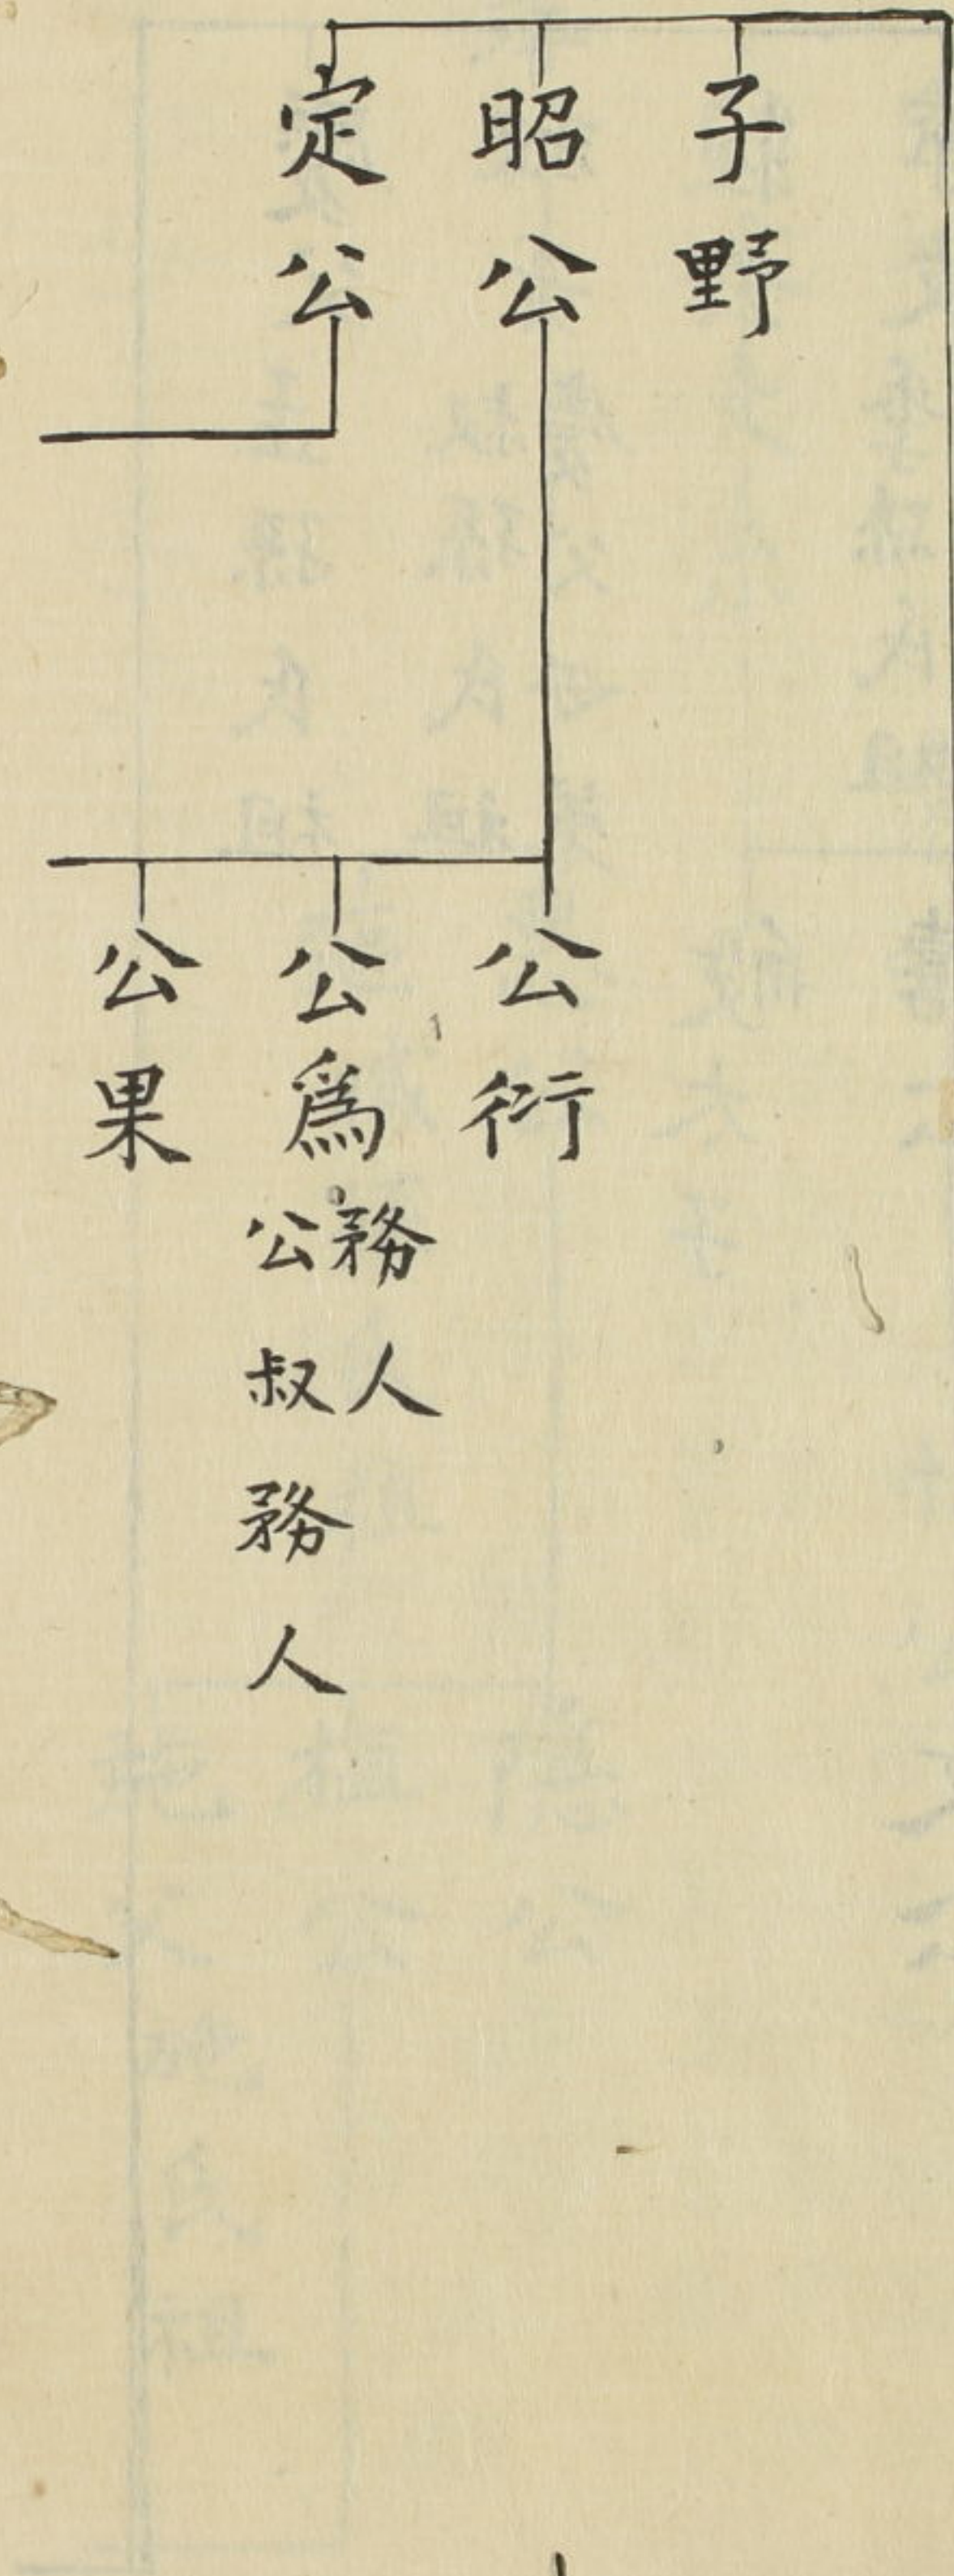 子野
昭公
定公
公衍
公爲
務人
公叔務人
公果